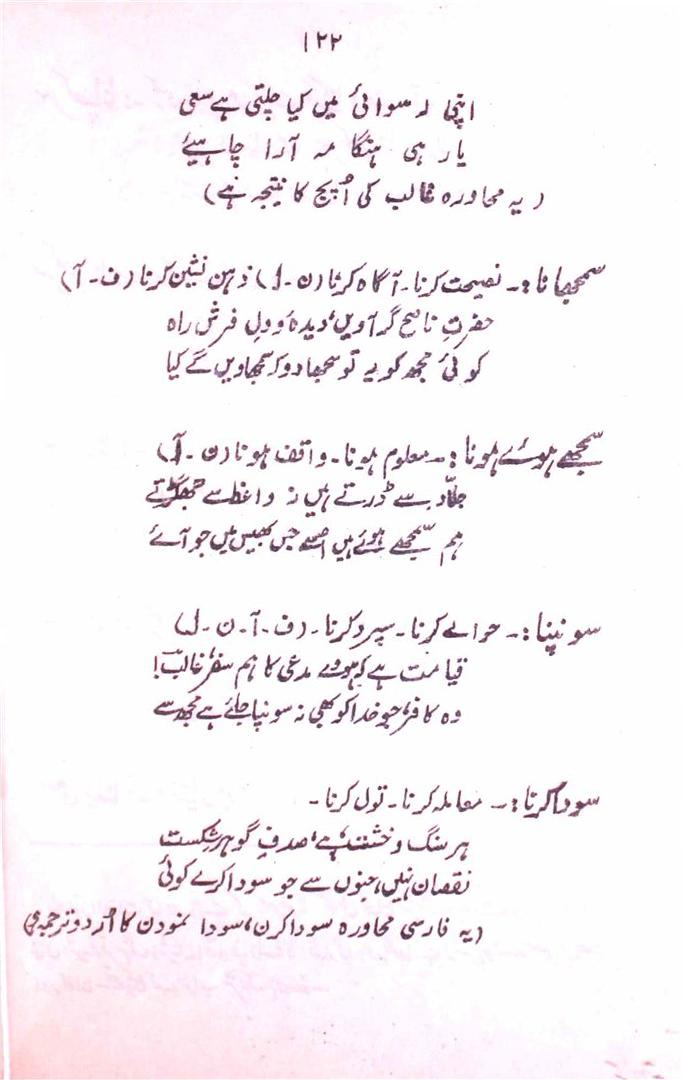 ۱۲۲
اپنی رسوائی میں کیا چلتی ہے سعی
یار ہی ہنگا مہ آرا چاہیئے
(یہ محاورہ غالب کی اُپچ کا نتیجہ ہے)
سمجھانا:۔ نصیحت کرنا۔ آگاہ کرنا (ن۔ ل) ذہن نشین کرنا (ف۔ آ)
حضرتِ ناصح گر آویں، دیدہ و دل فرش راہ
کوئی مجھ کو یہ تو سمجھا دو کہ سمجھاویں گے کیا
سمجھے ہوئے ہونا:۔ معلوم ہونا۔ واقف ہونا (ن۔ آ)
جلّاد سے ڈرتے ہیں نہ واعظ سے جھگڑتے
ہم سمجھے ہوئے ہیں اسے جس بھیس میں جو آئے
سونپنا:۔ حوالے کرنا۔ سپرد کرنا۔ (ف۔ آ۔ ن۔ ل)
قیامت ہے کہ ہووے مدعی کا ہم سفر غالبؔ!
وہ کافر، جو خدا کو بھی نہ سونپا جائے ہے مجھ سے
سودا کرنا:۔ معاملہ کرنا۔ تول کرنا۔
ہر سنگ و خشت ہے، صدفِ گوہرِ شکست
نقصان نہیں، جنوں سے جو سودا کرے کوئی
(یہ فارسی محاورہ سودا کرن، سودا نمودن کا اُردو ترجمہ ہے)